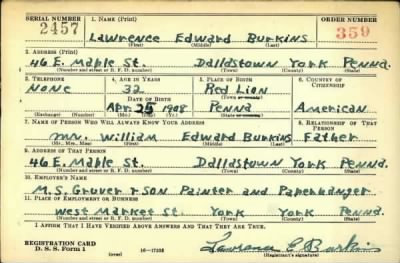 SERIAL NUMBER 1. NAME (Print) ORDER NUMBER
2457 Lawrence Edward Burkins 359
(First) (Middle) (Last)
2. ADDRESS (Print)
46 E. Maple St. Dallastown York Penna.
(Number and street or R. F. D. number) (Town) (County) (State)
3. TELEPHONE 4. AGE IN YEARS 5. PLACE OF BIRTH 6. COUNTRY OF CITIZENSHIP
None 32 Red Lion
DATE OF BIRTH (Town or county)
Apr. 25 1908 Penna American
(Exchange) (Number) (Mo.) (Day) (Yr.) (State or country)
7. NAME OF PERSON WHO WILL ALWAYS KNOW YOUR ADDRESS 8. RELATIONSHIP OF THAT PERSON
Mr. William Edward Burkins Father
(Mr., Mrs., Miss) (First) (Middle) (Last)
9. ADDRESS OF THAT PERSON
46 E. Maple St. Dallastown York Penna.
(Number and street or R. F. D. number) (Town) (County) (State)
10. EMPLOYER'S NAME
M. S. Gruver & Son Painter and Paperhanger
11. PLACE OF EMPLOYMENT OR BUSINESS
West Market St. York York Penna.
(Number and street or R. F. D. number) (Town) (County) (State)
I AFFIRM THAT I HAVE VERIFIED ABOVE ANSWERS AND THAT THEY ARE TRUE.
REGISTRATION CARD
D. S. S. Form 1 (over) 16-17105 Lawrence E Burkins
(Registrant's signature)